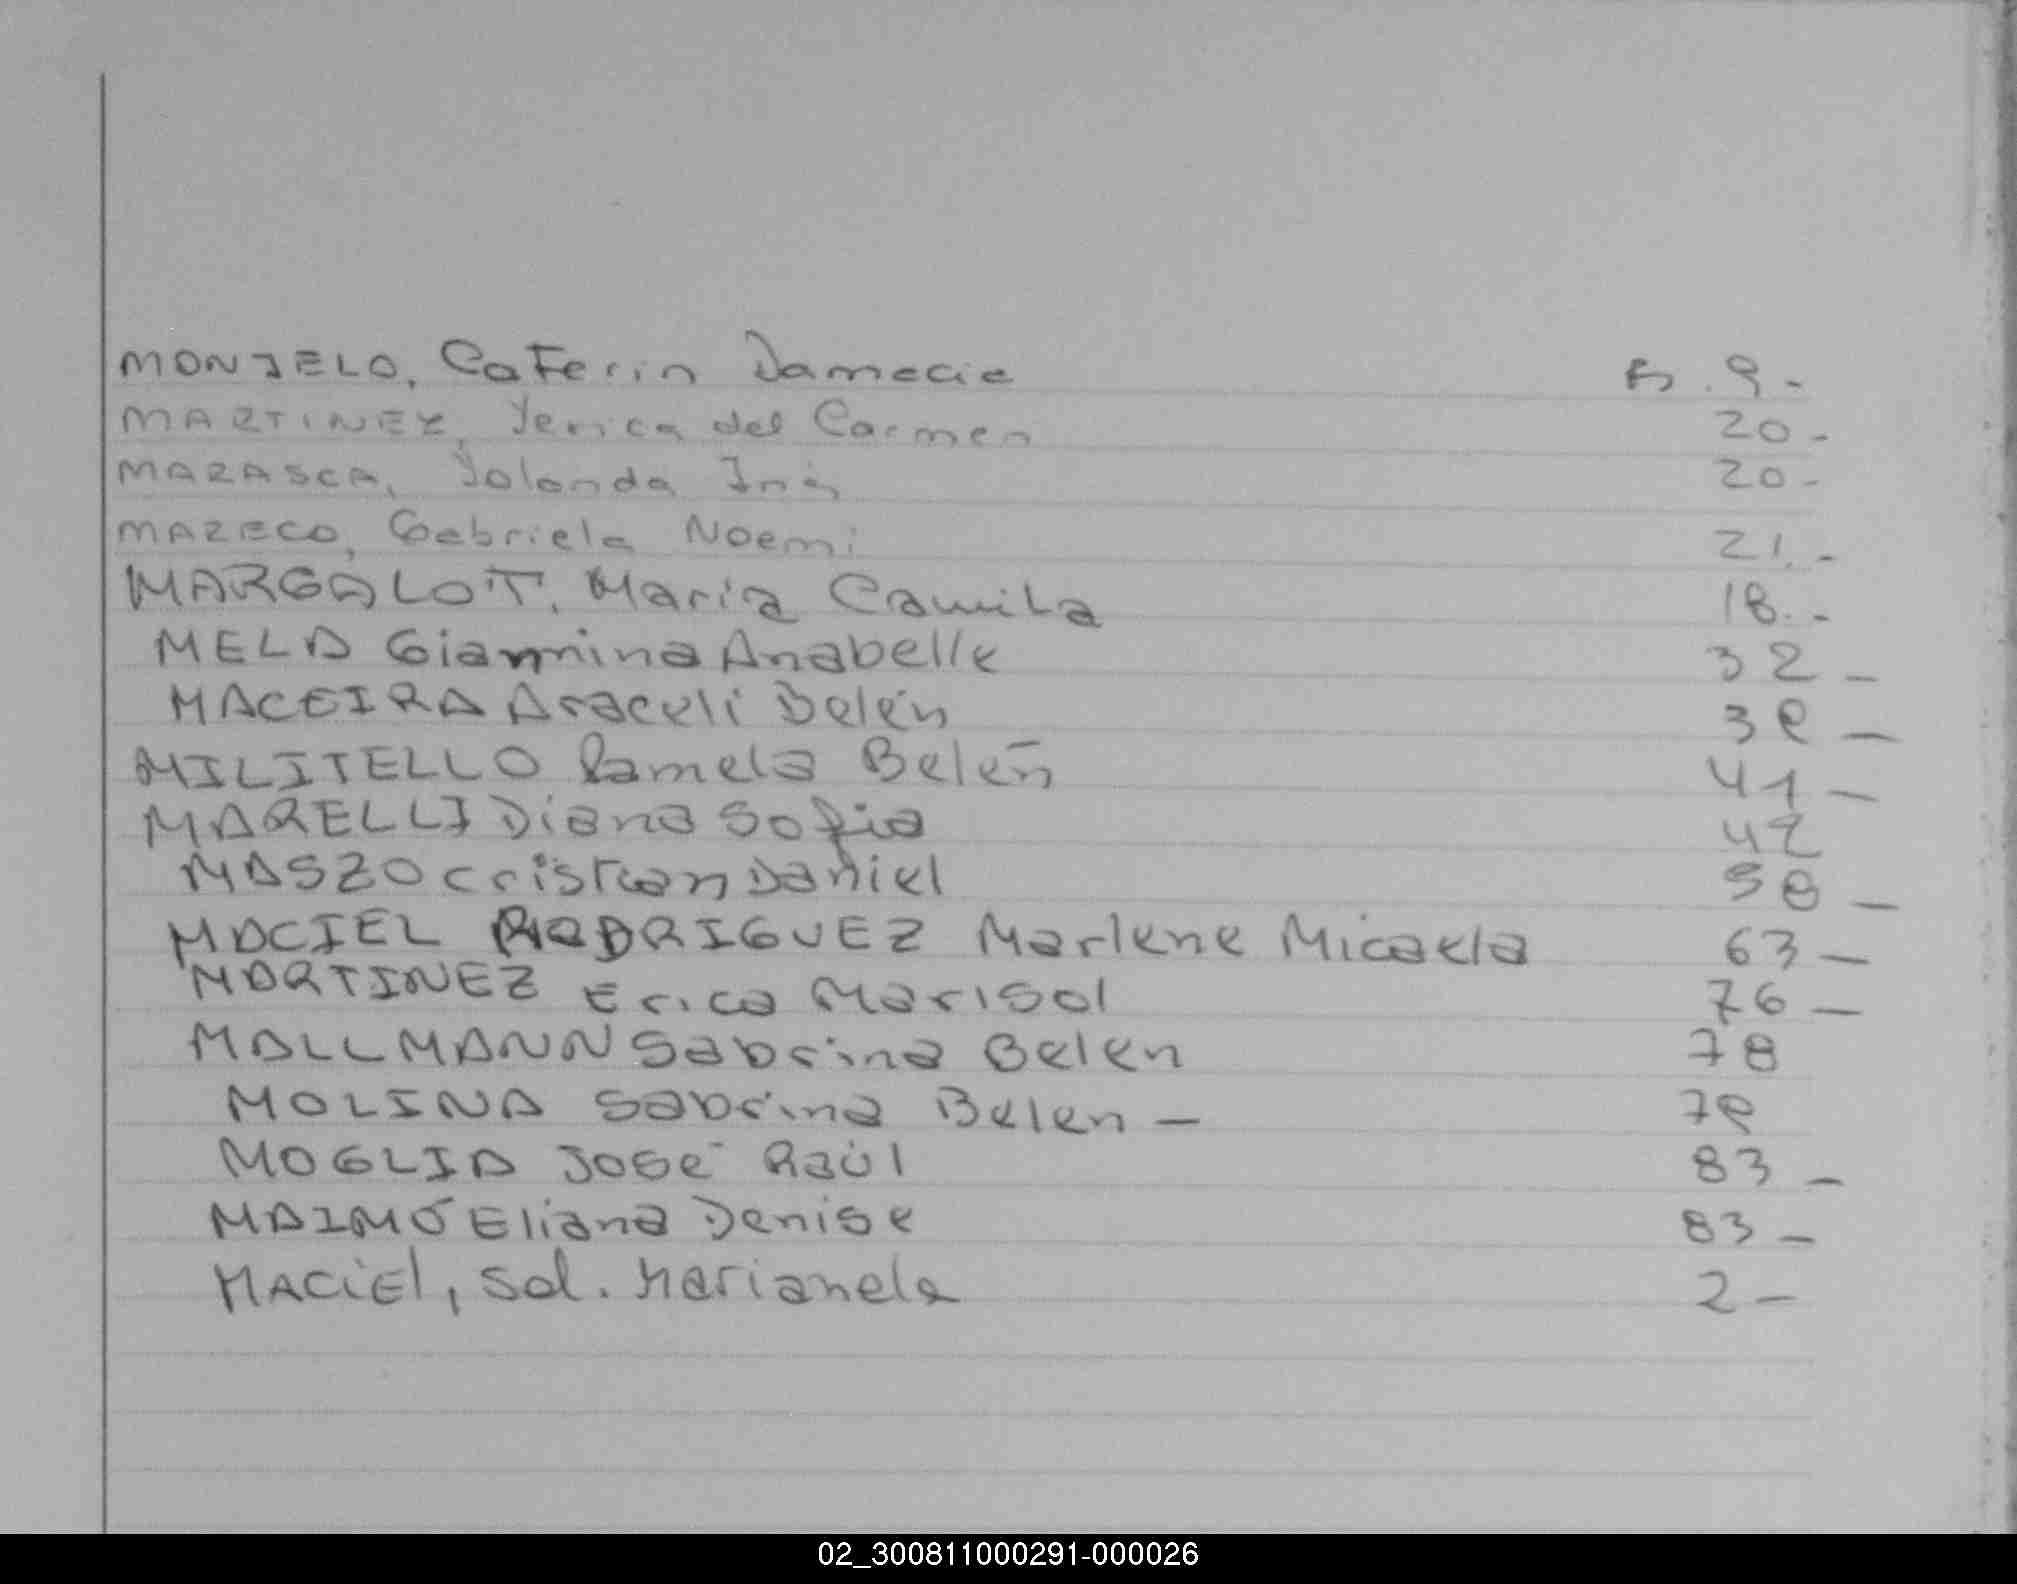 MONJELO, Caterin Damecie Fs. 9-
MARTINEZ, Yerica del Carmen 20-
MARASCA, Yolanda Inés 20-
MAZECO, Gabriela Noemi 21.-
MARGALOT, Maria Camila 18.-
MELA Giannina Anabelle 32-
MACEIRA Araceli Belén 39-
MILITELLO Pamela Belén 41-
MARELLI Diana Sofia 42
MASZO Cristian Daniel 58-
MACIEL RODRIGUEZ Marlene Micaela 63-
MARTINEZ Erica Marisol 76-
MALLMANN Sabrina Belen 78
MOLINA Sabrina Belen - 79
MOGLIA José Raúl 83-
MAIMÓ Eliana Denise 83-
MACiEl, Sol. Marianela 2-
02_300811000291-000026